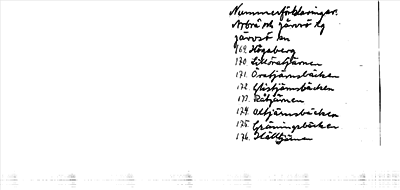 Nummerförklaringar.
Arbrå och Järvsö sg
Järvsö kn
169. Högaberg
170. Lillöratjärnen
171. Öratjärnsbäcken
172. Glistjärnsbäcken
173. Råtjärnen
174. Altjärnsbäcken
175. Gräningsbäcken
176. Hålltjärnen